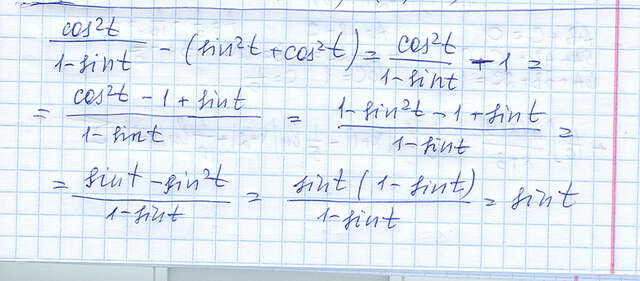 cos²t / (1 - sin t) - (sin²t + cos²t) = cos²t / (1 - sin t) - 1 =
= (cos²t - 1 + sin t) / (1 - sin t) = (1 - sin²t - 1 + sin t) / (1 - sin t) =
= (sin t - sin²t) / (1 - sin t) = sin t (1 - sin t) / (1 - sin t) = sin t